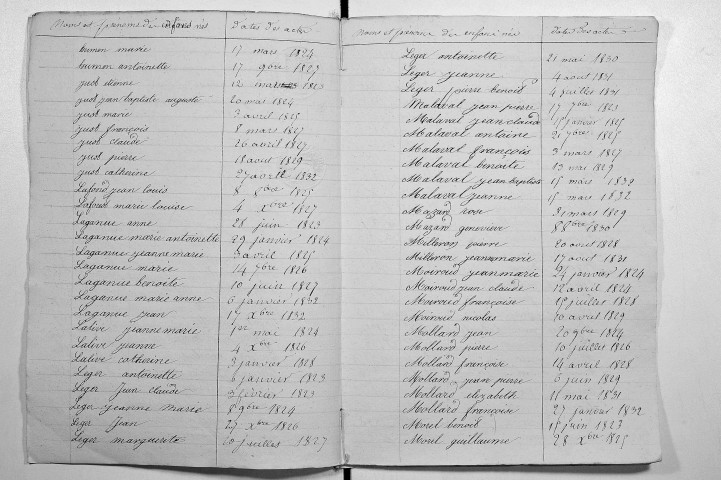 Noms et prénoms des enfans nés Dates des actes
humon marie 17 mars 1824
humon antoinette 17 9bre 1827
just etienne 12 mars 1823
just jean baptiste auguste 20 mai 1824
just marie 3 avril 1825
just françois 8 mars 1827
just claude 26 avril 1827
just pierre 18 aout 1829
just catherine 27 avril 1832
Lafond jean louis 8 8bre 1825
Lafond marie louise 4 Xbre 1827
Laganue anne 28 juin 1823
Laganue marie antoinette 29 janvier 1824
Laganue jeanne marie 3 avril 1825
Laganue marie 14 7bre 1826
Laganue benoite 10 juin 1827
Laganue marie anne 6 janvier 1832
Laganue jean 17 Xbre 1832
Lative jeanne marie 1er mai 1824
Lative jeanne 4 Xbre 1826
Lative catherine 3 janvier 1828
Leger antoinette 6 janvier 1823
Leger Jean claude 3 fevrier 1823
Leger jeanne marie 8 9bre 1824
Leger Jean 27 Xbre 1826
Leger marguerite 20 juillet 1827
Noms et prénoms des enfans nés Dates des actes
Leger antoinette 21 mai 1830
Leger jeanne 4 aout 1831
Leger pierre benoit 4 juillet 1831
Malaval jean pierre 17 7bre 1823
Malaval jean claude 15 janvier 1825
Malaval antoine 21 7bre 1825
Malaval françois 3 mars 1827
Malaval benoite 13 mai 1829
Malaval jean baptiste 15 mars 1832
Malaval jeanne 15 mars 1832
Mazard rose 31 mars 1829
Mazard genevieve 8 8bre 1830
Milleron pierre 20 avril 1828
Milleron jeanne marie 17 avril 1831
Moiroud jeanne marie 24 janvier 1824
Moiroud jean claude 12 avril 1824
Moiroud françoise 15 juillet 1828
Moiroud nicolas 10 avril 1829
Mollard jean 20 9bre 1824
Mollard pierre 10 juillet 1826
Mollard françoise 14 avril 1828
Mollard jean pierre 6 juin 1829
Mollard elizabeth 15 mai 1831
Mollard françoise 27 janvier 1832
Morel benoit 15 juin 1823
Morel guillaume 28 Xbre 1825